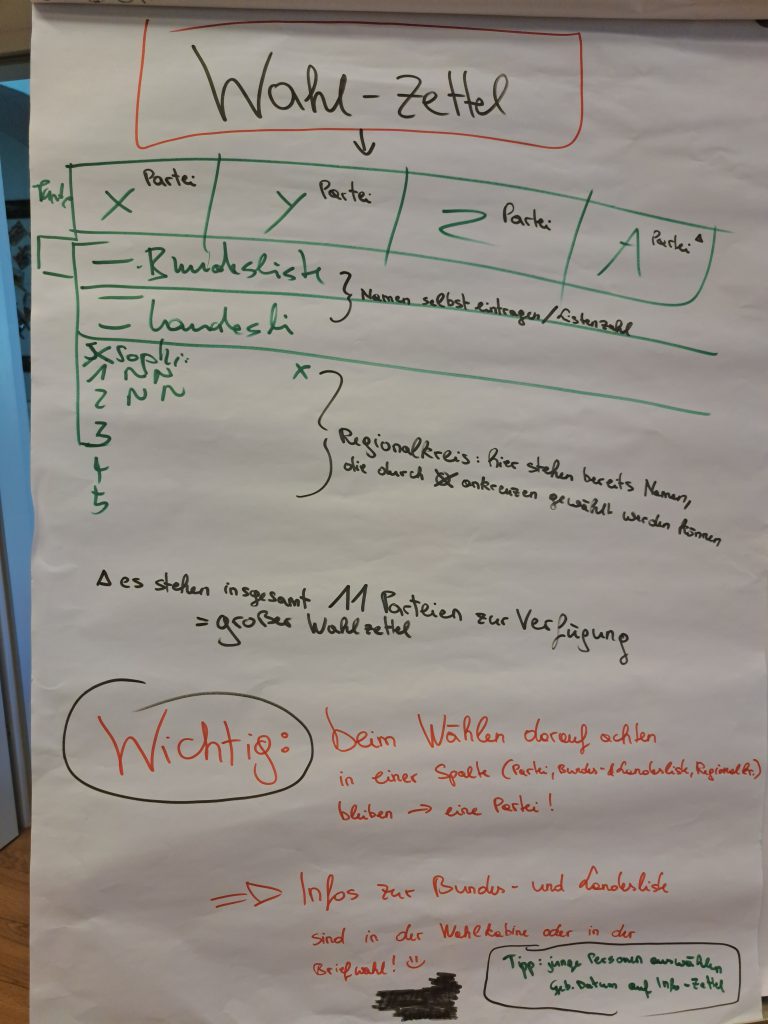 Wahl-Zettel
X Partei Y Partei Z Partei A Partei Δ
Bundesliste
Landesli
} Namen selbst eintragen/Listenzahl
1 N N
2 N N
3
4
5
x
Regionalkreis: hier stehen bereits Namen,
die durch ankreuzen gewählt werden können
Δ es stehen insgesamt 11 Parteien zur Verfügung
= großer Wahlzettel
Wichtig: beim Wählen darauf achten
in einer Spalte (Partei, Bundes- & Landesliste, Regionalkr.)
bleiben → eine Partei!
⇒ Infos zur Bundes- und Landesliste
sind in der Wahlkabine oder in der
Briefwahl! ☺
Tipp: junge Personen auswählen
Geb. Datum auf Info-Zettel